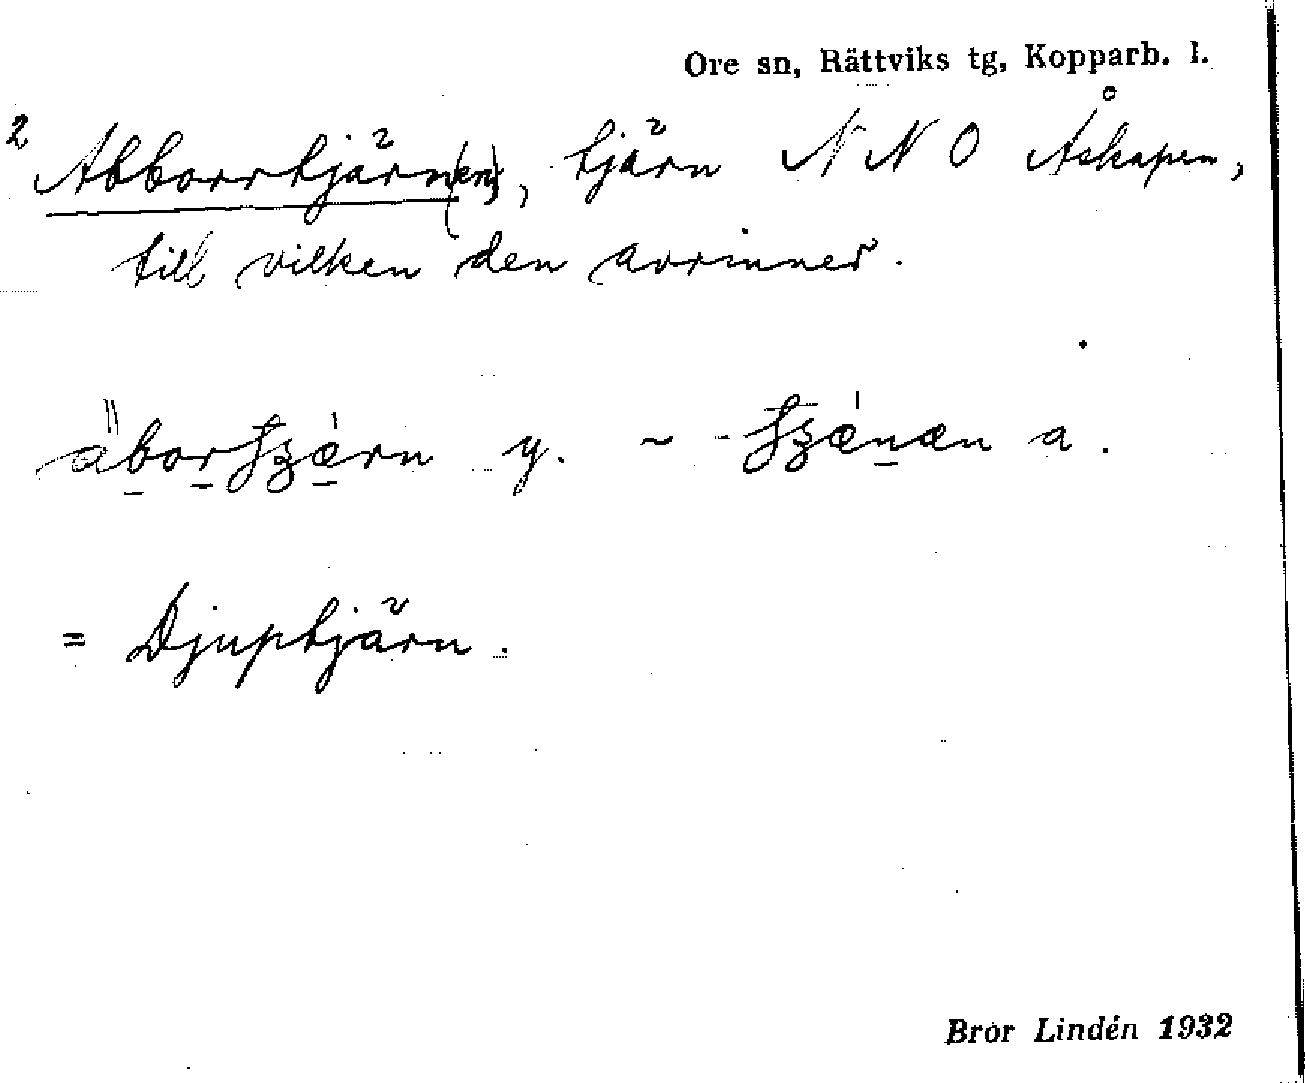 Ore sn, Rättviks tg, Kopparb. l.
2 Abborrtjärn(en), tjärn NNO Åskapen,
till vilken den avrinner.
y. ~ a.
= Djuptjärn.
Bror Lindén 1932